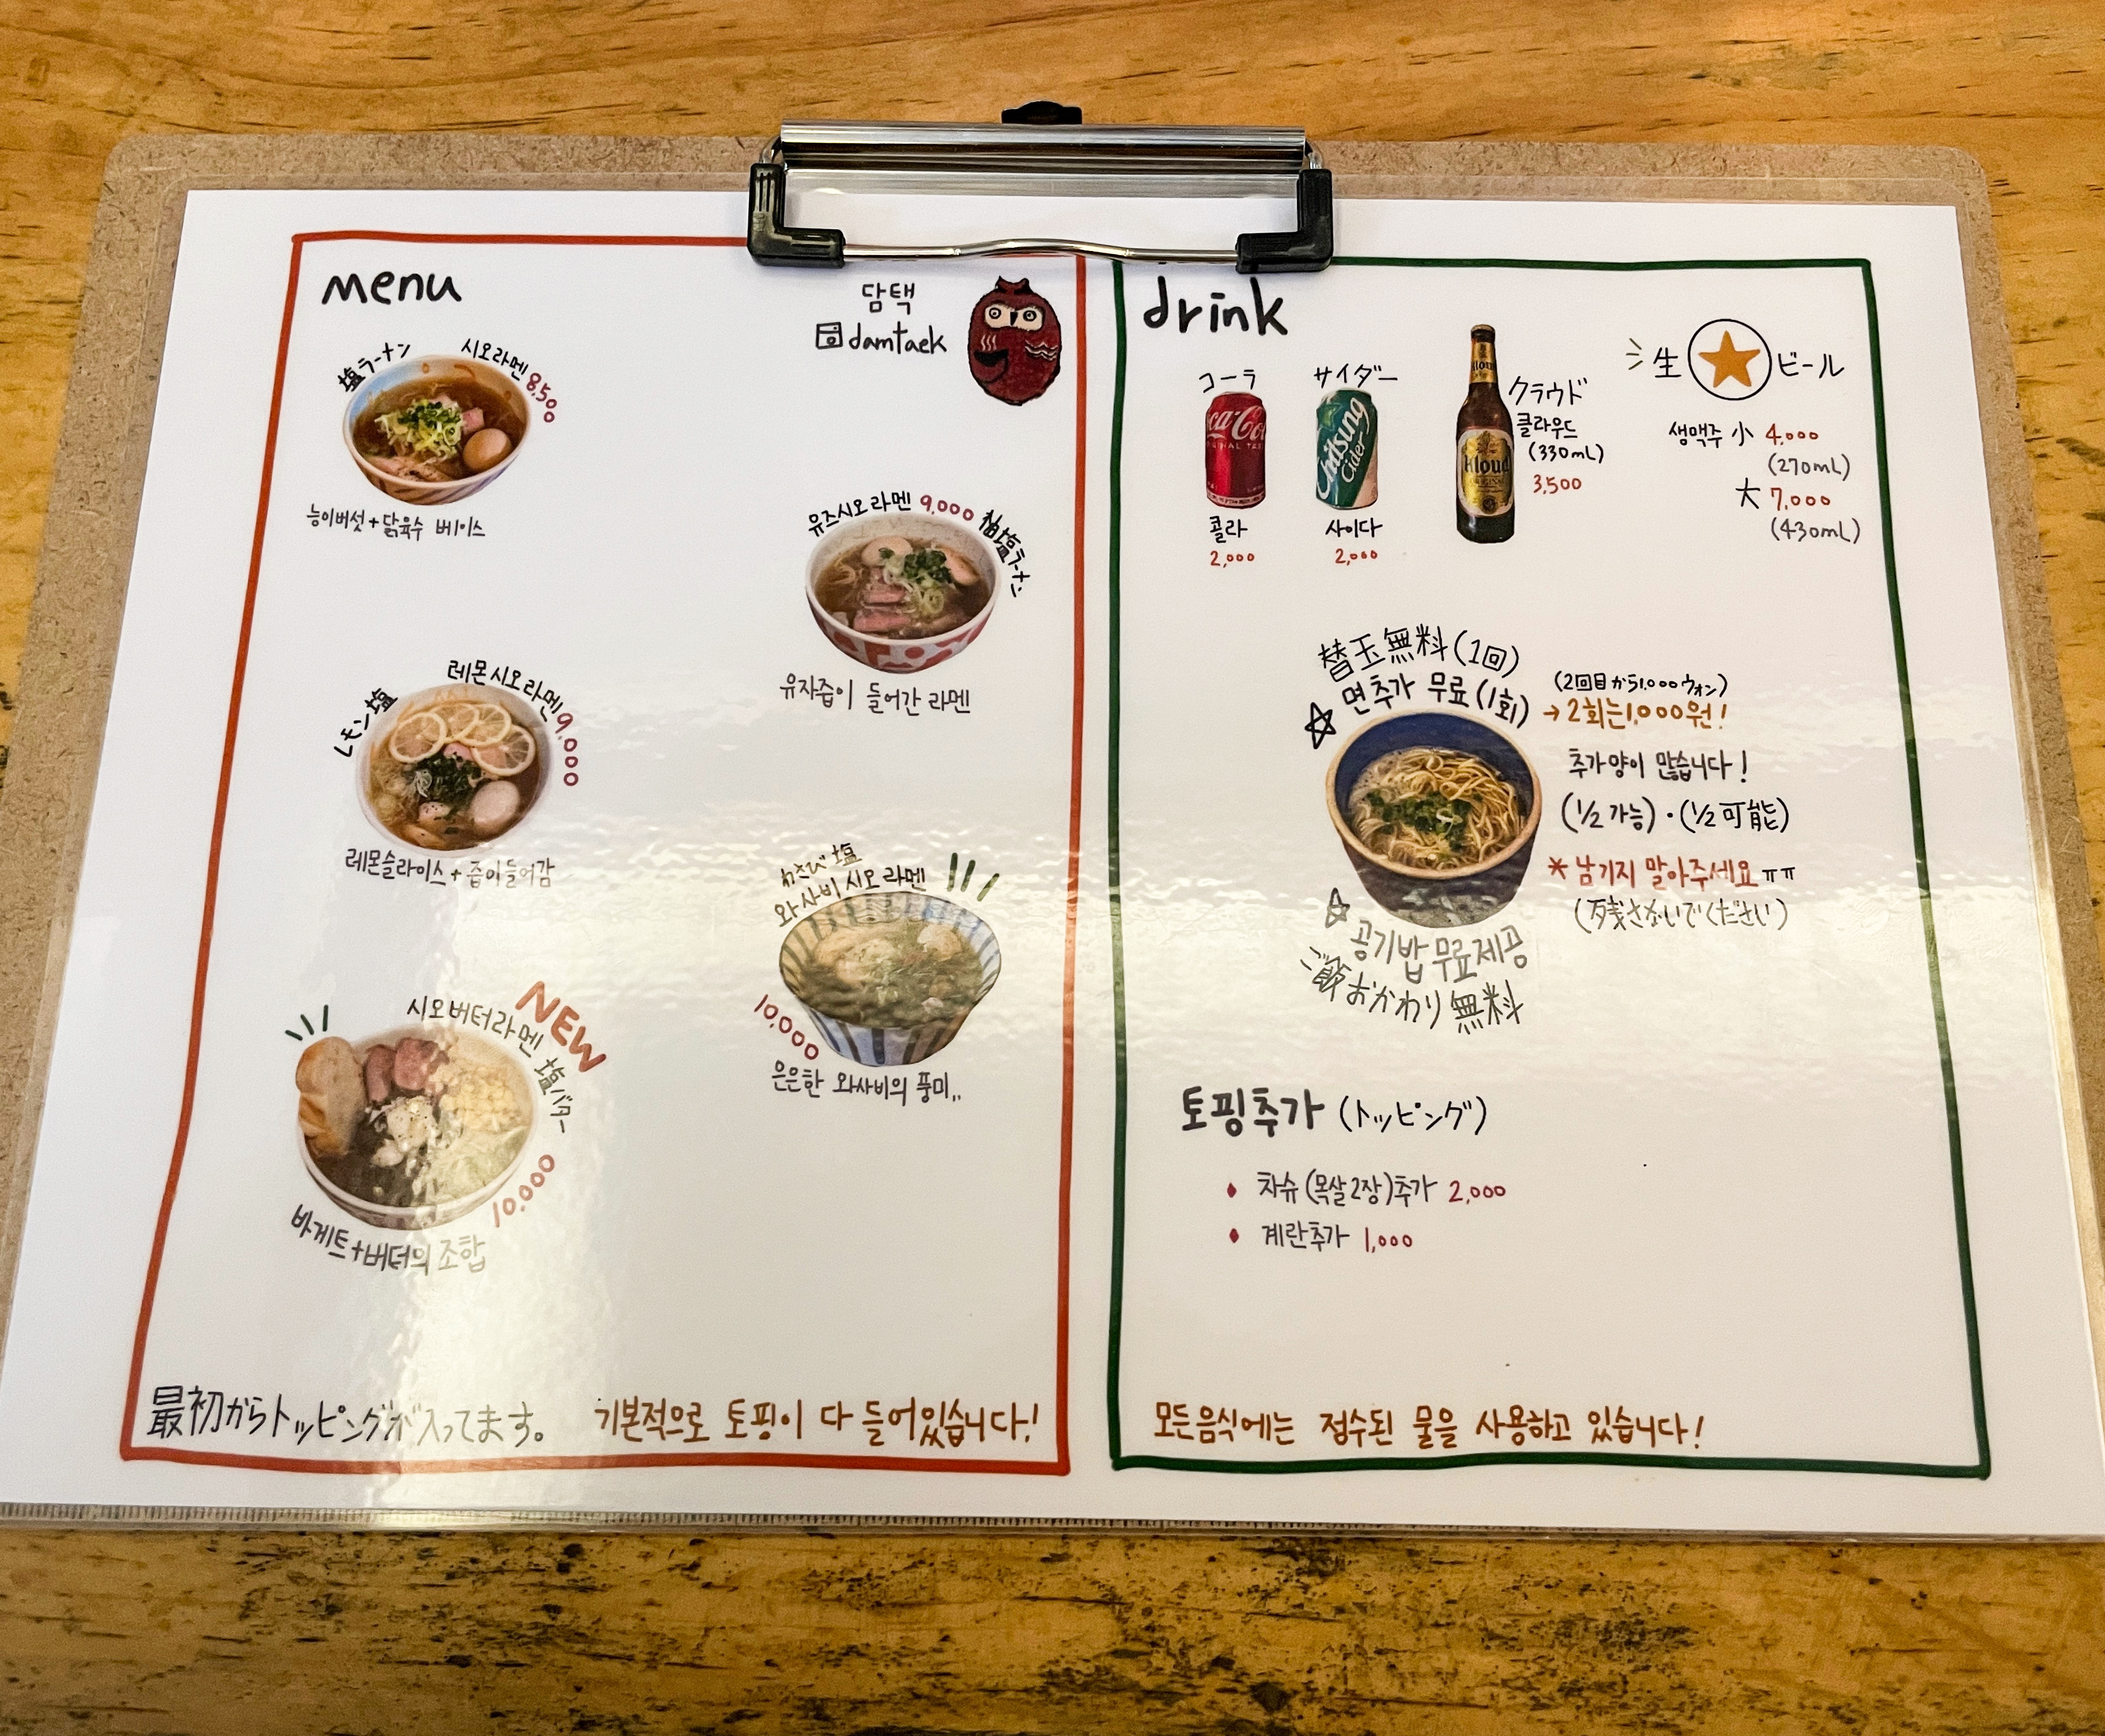 menu
담택
damtaek
塩ラーメン
시오라멘 8,500
능이버섯+닭육수 베이스
유즈시오라멘 9,000 柚塩ラーメン
유자즙이 들어간 라멘
レモン塩
레몬시오라멘 9,000
레몬슬라이스+즙이들어감
わさび塩
와사비시오라멘
10,000
은은한 와사비의 풍미..
NEW
시오버터라멘 塩バター
10,000
바게트+버터의 조합
最初からトッピングが入ってます。 기본적으로 토핑이 다 들어있습니다!
drink
コーラ
Coca-Cola
콜라
2,000
サイダー
Chilsung Cider
사이다
2,000
Kloud
クラウド
클라우드
(330mL)
3,500
生★ビール
생맥주 小 4,000
(270mL)
大 7,000
(430mL)
替玉無料(1回)
☆면추가 무료(1회)
(2回目から1,000ウォン)
→2회는1,000원!
추가양이 많습니다!
(1/2가능)・(1/2可能)
*남기지 말아주세요ㅠㅠ
(残さないでください)
☆공기밥무료제공
ご飯おかわり無料
토핑추가 (トッピング)
차슈(목살2장)추가 2,000
계란추가 1,000
모든음식에는 정수된 물을 사용하고 있습니다!